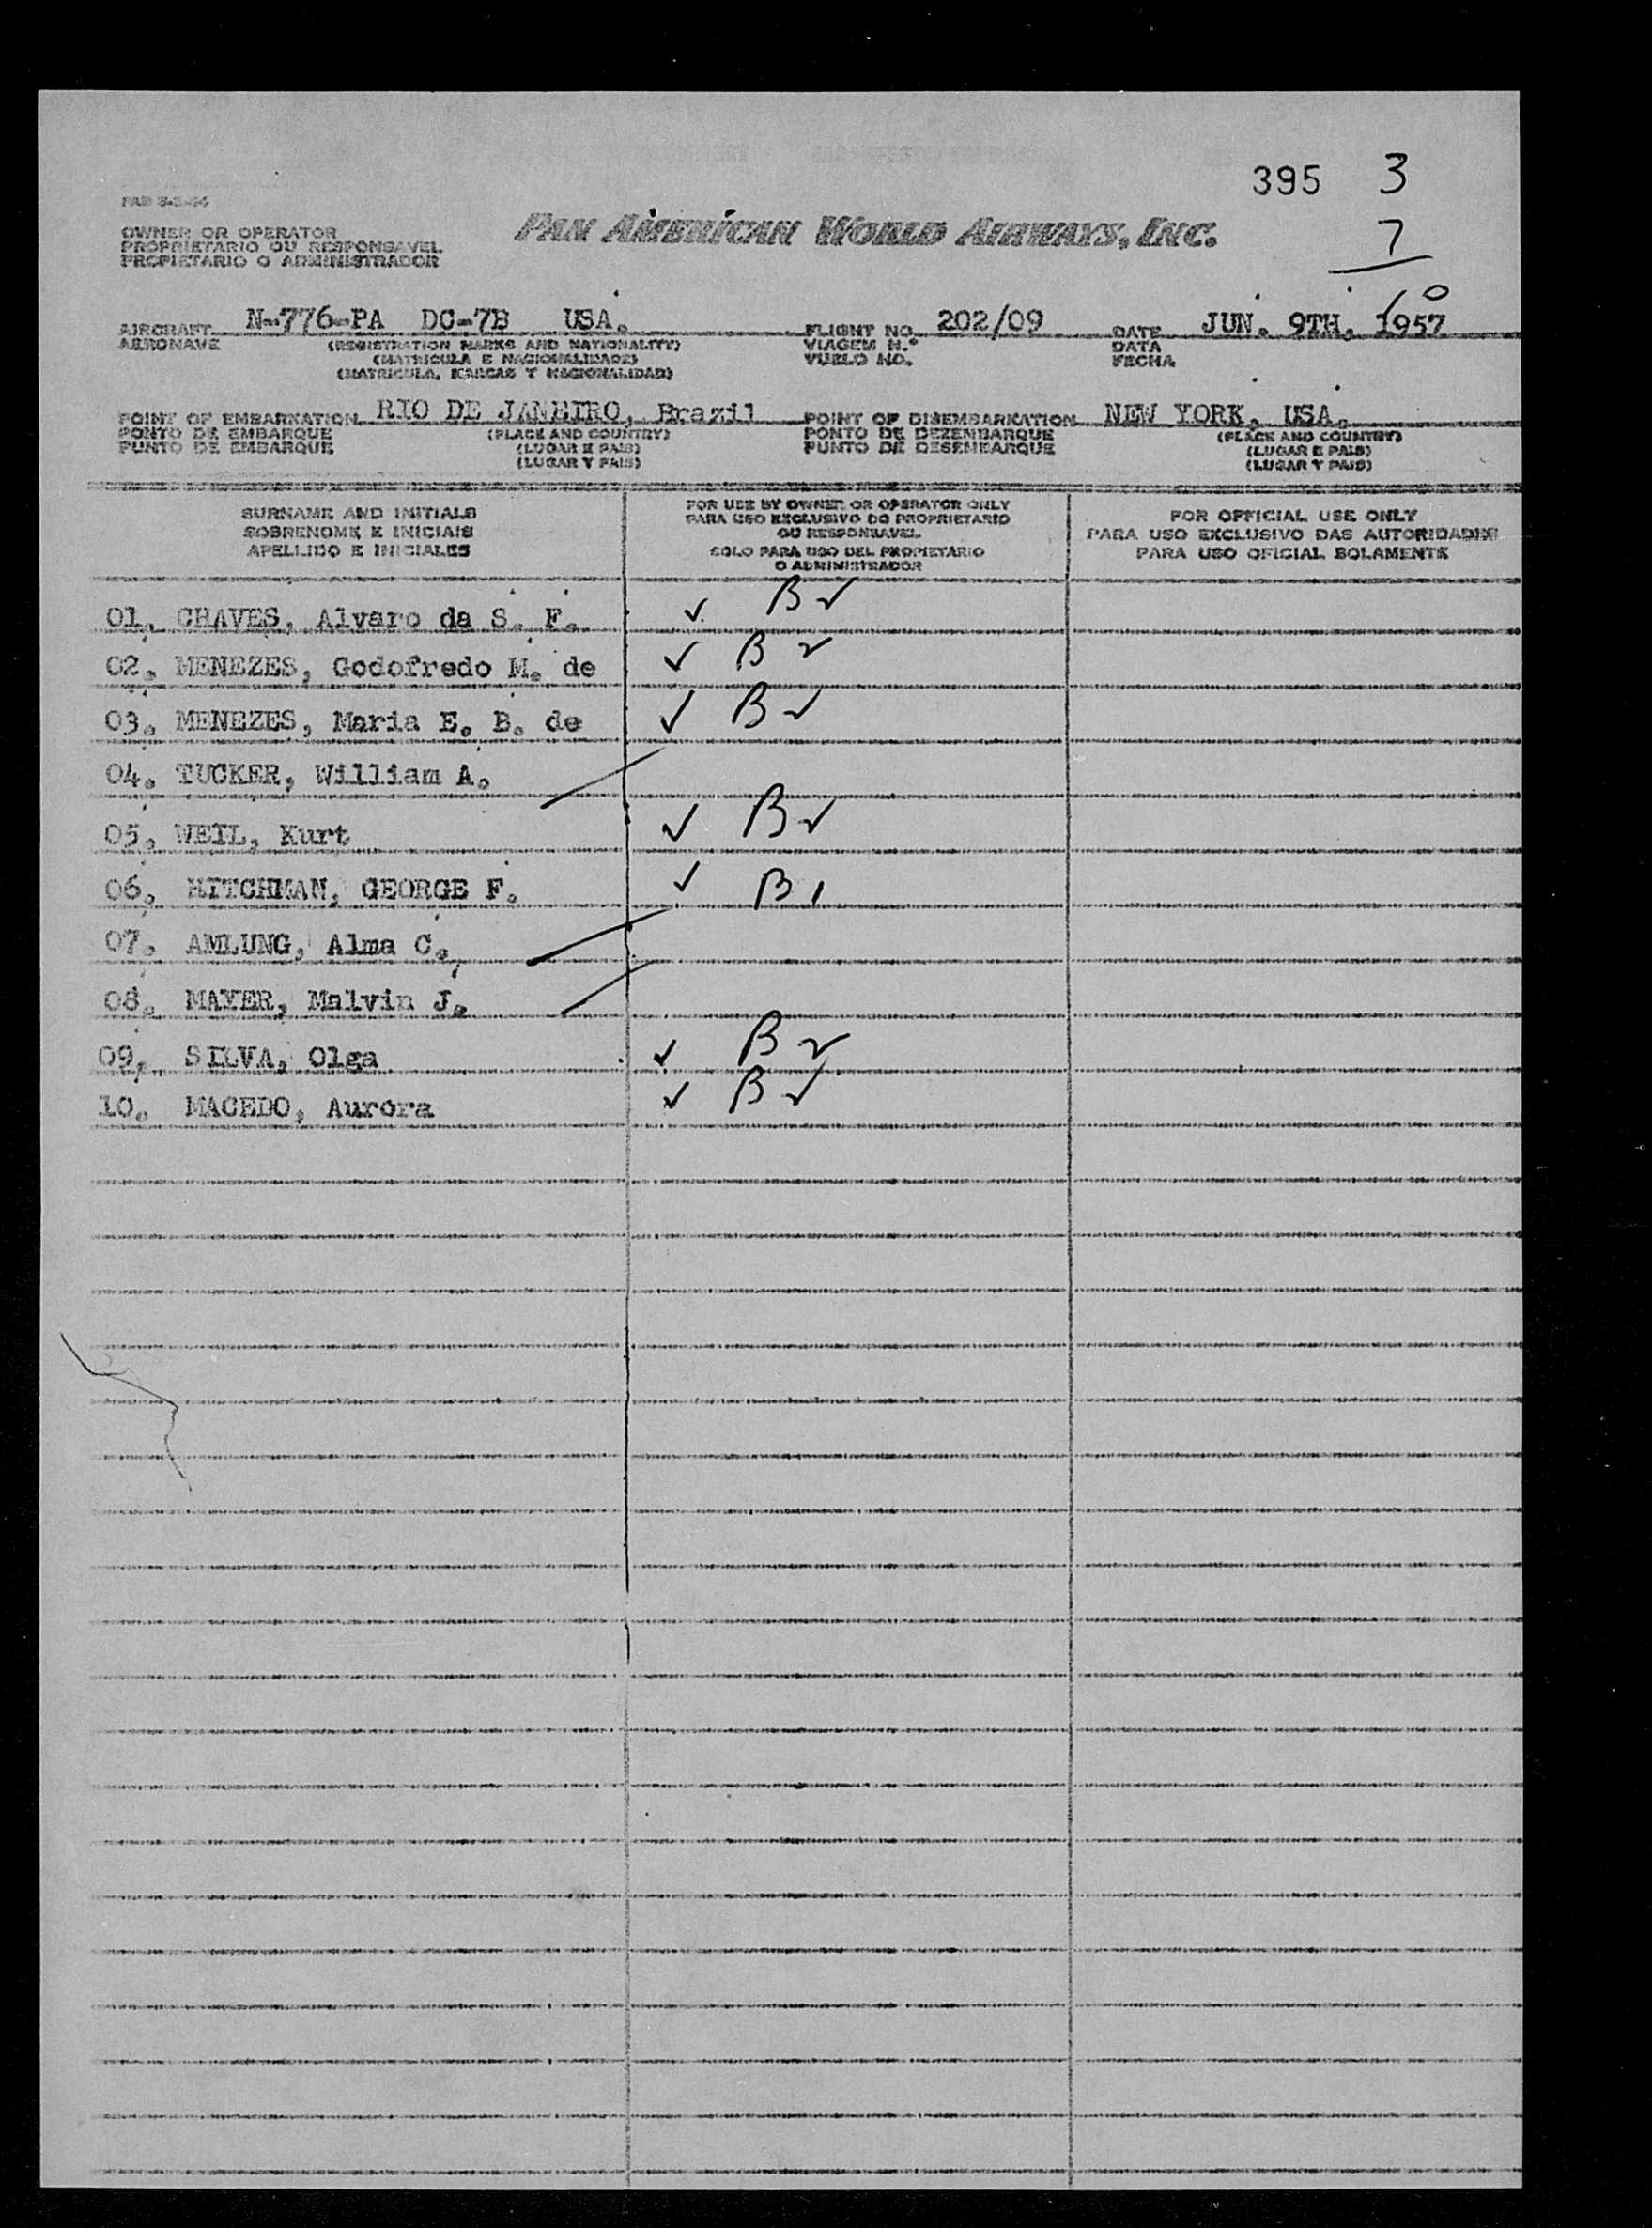 395 3
7
10
PAN AMERICAN WORLD AIRWAYS, INC.
OWNER OR OPERATOR
PROPRIETARIO OU RESPONSAVEL
PROPIETARIO O ADMINISTRADOR
AIRCRAFT N-776-PA DC-7B USA. FLIGHT NO. 202/09 DATE JUN. 9TH. 1957
AERONAVE (REGISTRATION MARKS AND NATIONALITY) VIAGEM N.º DATA
(MATRICULA E NACIONALIDADE) VUELO NO. FECHA
(MATRICULA, MARCAS Y NACIONALIDAD)
POINT OF EMBARKATION RIO DE JANEIRO, Brazil POINT OF DISEMBARKATION NEW YORK, USA.
PONTO DE EMBARQUE (PLACE AND COUNTRY) PONTO DE DEZEMBARQUE (PLACE AND COUNTRY)
PUNTO DE EMBARQUE (LUGAR E PAIS) PUNTO DE DESEMBARQUE (LUGAR E PAIS)
(LUGAR Y PAIS) (LUGAR Y PAIS)
SURNAME AND INITIALS
SOBRENOME E INICIAIS
APELLIDO E INICIALES
FOR USE BY OWNER OR OPERATOR ONLY
PARA USO EXCLUSIVO DO PROPRIETARIO
OU RESPONSAVEL
SOLO PARA USO DEL PROPIETARIO
O ADMINISTRADOR
FOR OFFICIAL USE ONLY
PARA USO EXCLUSIVO DAS AUTORIDADES
PARA USO OFICIAL SOLAMENTE
01. CHAVES, Alvaro da S. F. ✓ B ✓
02. MENEZES, Godofredo M. de ✓ B ✓
03. MENEZES, Maria E. B. de ✓ B ✓
04. TUCKER, William A.
05. WEIL, Kurt ✓ B ✓
06. HITCHMAN, GEORGE F. ✓ B 1
07. AMLUNG, Alma C.
08. MAYER, Malvin J.
09. SILVA, Olga ✓ B ✓
10. MACEDO, Aurora ✓ B ✓